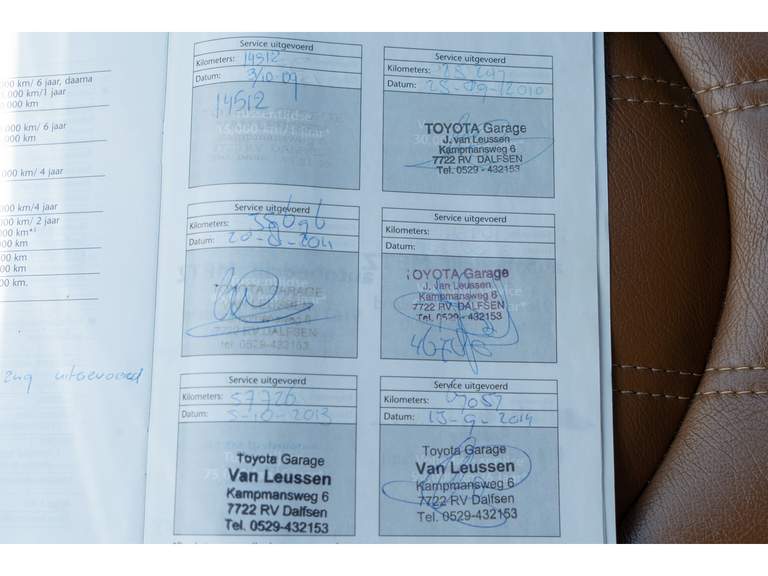 000 km/ 6 jaar, daarna
.000 km/1 jaar
000 km
000 km/ 6 jaar
000 km
000 km/ 4 jaar
000 km/4 jaar
000 km/ 2 jaar
000 km
00 km
00 km
00 km.
uitgevoerd
Service uitgevoerd
Kilometers: 14512
Datum: 3/10-09
14512
Service uitgevoerd
Kilometers:
Datum: 25-09-2010
TOYOTA Garage
J. van Leussen
Kampmansweg 6
7722 RV DALFSEN
Tel. 0529-432153
Service uitgevoerd
Kilometers:
Datum:
TOYOTA GARAGE
7722 RV DALFSEN
tel. 0529-432153
Service uitgevoerd
Kilometers:
Datum:
TOYOTA Garage
J. van Leussen
Kampmansweg 6
7722 RV DALFSEN
Tel. 0529-432153
Service uitgevoerd
Kilometers: 57726
Datum: 5-10-2013
Toyota Garage
Van Leussen
Kampmansweg 6
7722 RV Dalfsen
Tel. 0529-432153
Service uitgevoerd
Kilometers:
Datum: 15-9-2014
Toyota Garage
Van Leussen
Kampmansweg 6
7722 RV Dalfsen
Tel. 0529-432153